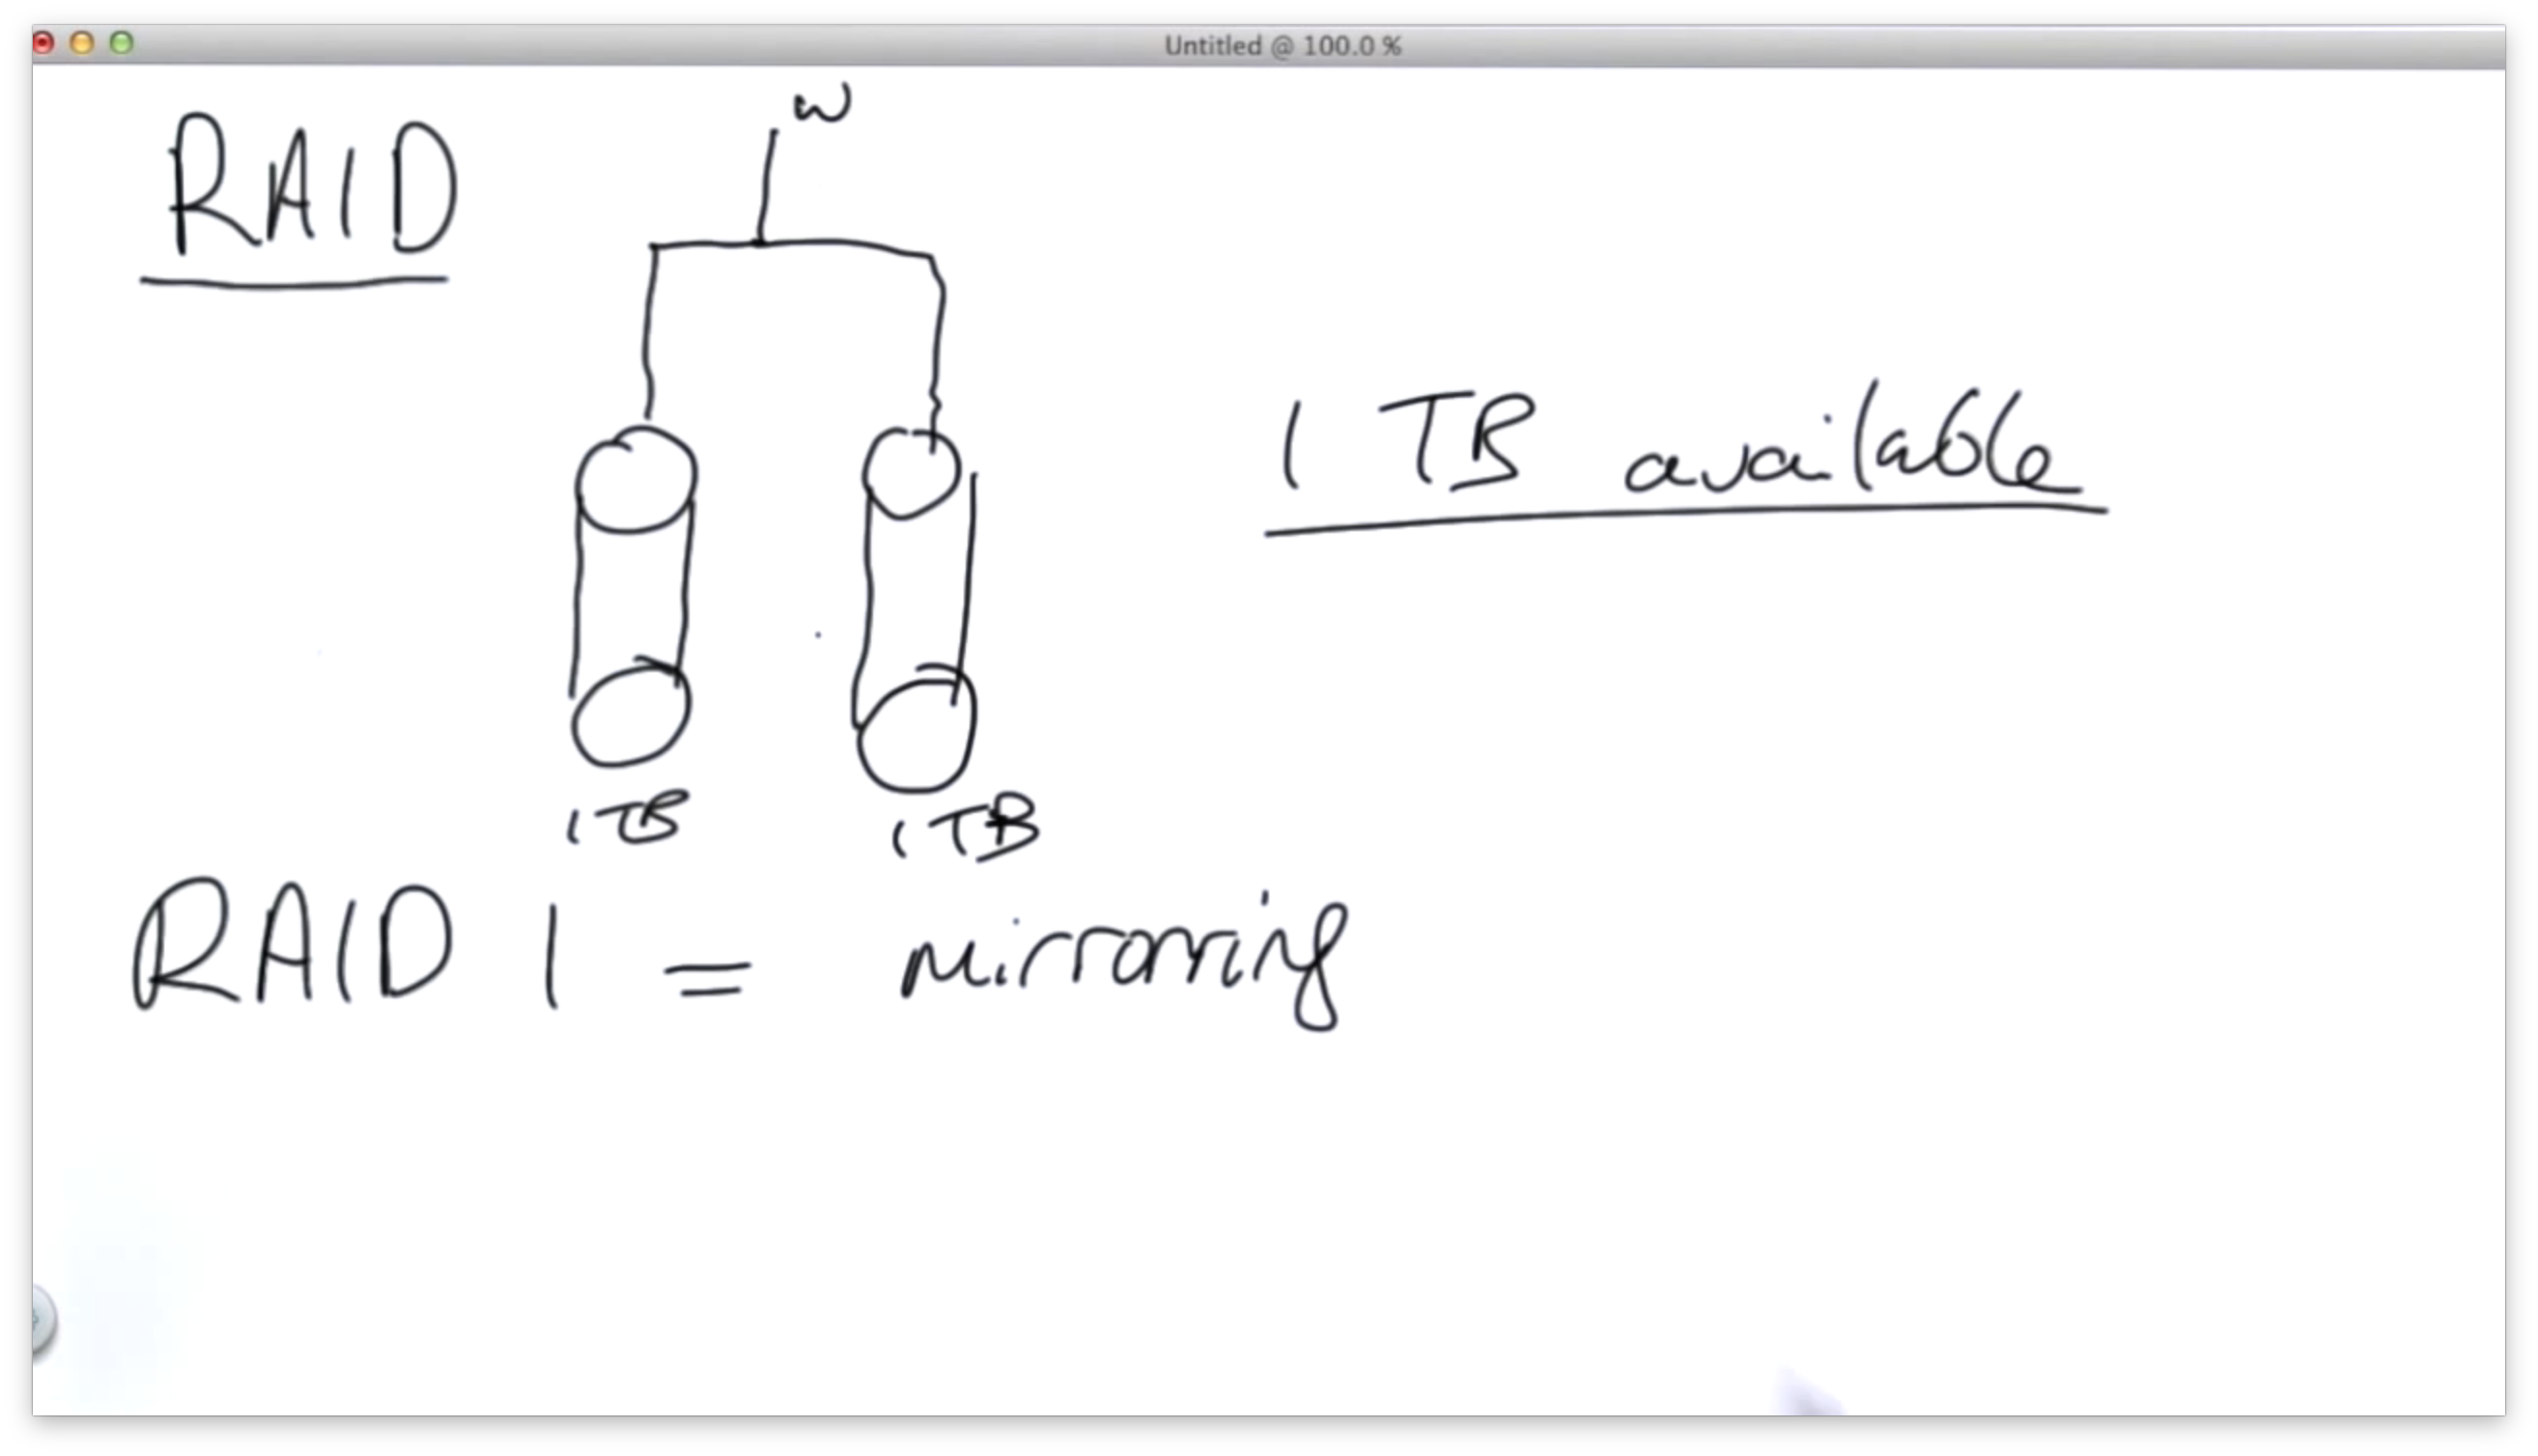 Untitled @ 100.0 %
w
RAID
1 TB available
1 TB 1 TB
RAID 1 = mirroring